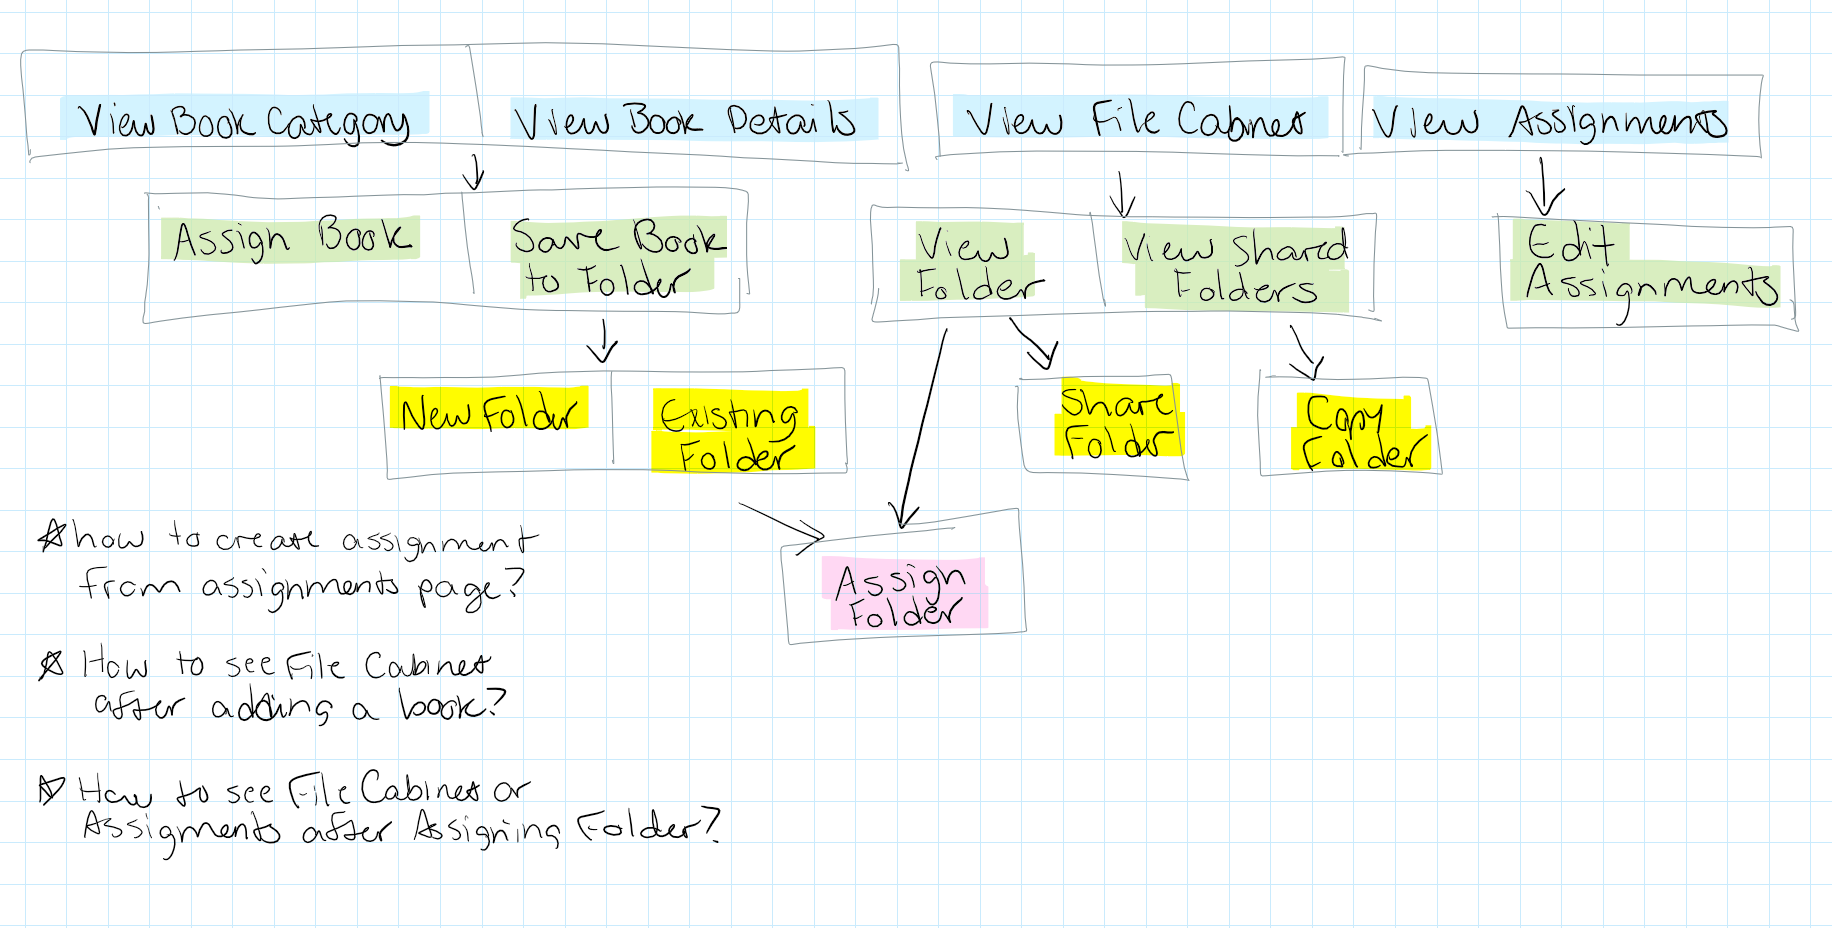 View Book Category
View Book Details
View File Cabinet
View Assignments
Assign Book
Save Book
to Folder
View
Folder
View Shared
Folders
Edit
Assignments
New Folder
Existing
Folder
Share
Folder
Copy
Folder
Assign
Folder
☆ how to create assignment
from assignments page?
☆ How to see File Cabinet
after adding a book?
☆ How to see File Cabinet or
Assigments after Assigning Folder?